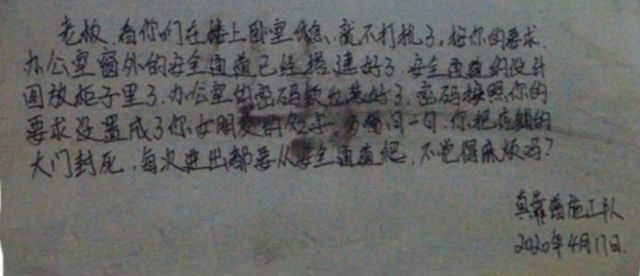 老板,看你们在楼上卧室休息,就不打扰了。按你的要求,
办公室窗外的安全通道已经搭建好了,安全通道的设计
图放柜子里了,办公室的密码锁也装好了,密码按照你的
要求设置成了你女朋友的,问一句,你把店铺的
大门封死,每次进出都要从安全通道爬,不觉得麻烦吗?
真靠谱施工队
2020年4月17日